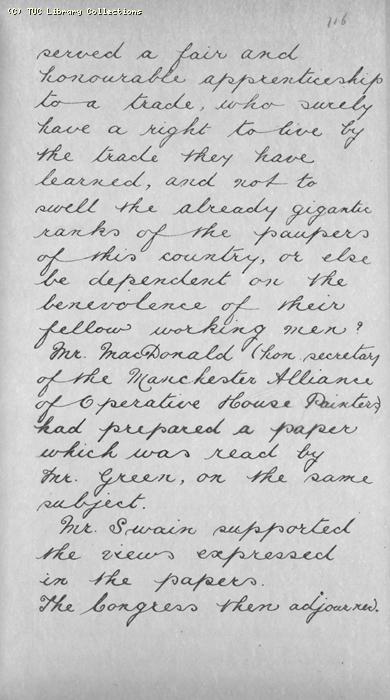 (C) TUC Library Collections
116
served a fair and
honourable apprenticeship
to a trade, who surely
have a right to live by
the trade they have
learned, and not to
swell the already gigantic
ranks of the paupers
of this country, or else
be dependent on the
benevolence of their
fellow working men?
Mr. MacDonald (hon secretary
of the Manchester Alliance
of Operative House Painters)
had prepared a paper
which was read by
Mr. Green, on the same
subject.
Mr. Swain supported
the views expressed
in the papers.
The Congress then adjourned.